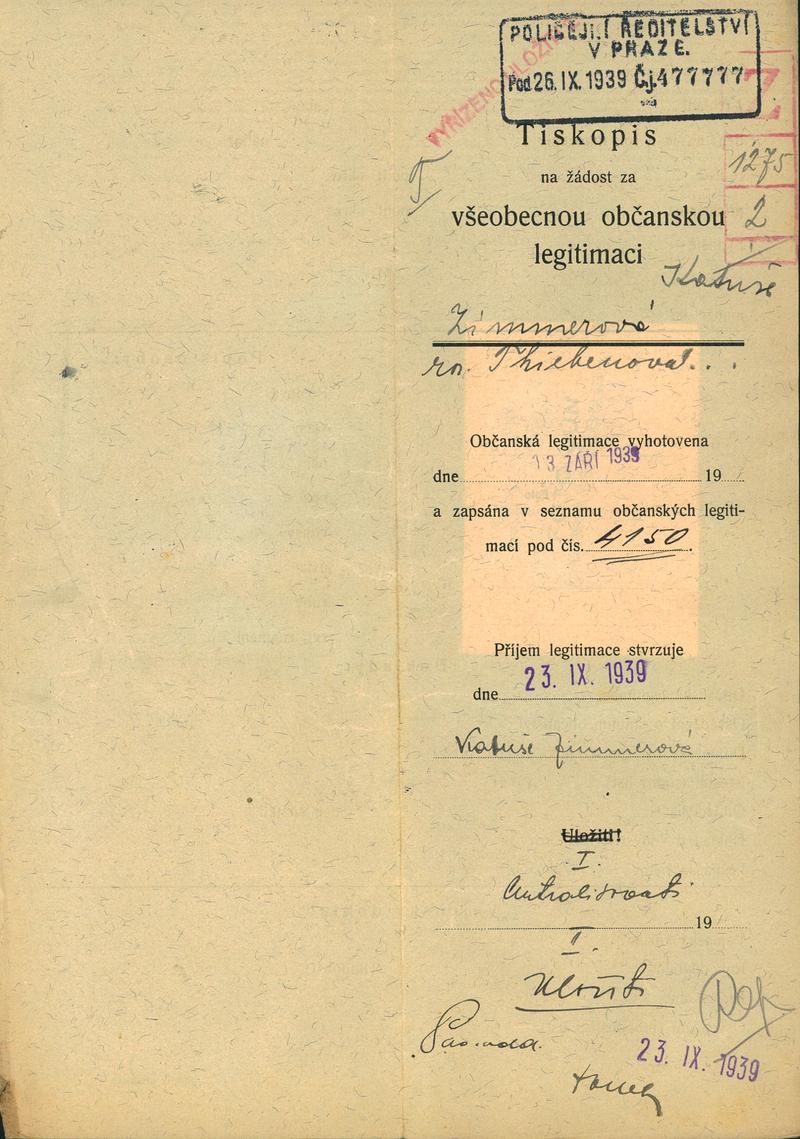 POLICEJNÍ ŘEDITELSTVÍ
V PRAZE.
Pod 26.IX.1939 Čj.477777
VYŘÍZENO ULOŽIT
Tiskopis
1275
na žádost za
všeobecnou občanskou
2
legitimaci
Katuše
Zimmerová
roz. Thiebenová
Občanská legitimace vyhotovena
13 ZÁŘÍ 1939
dne 19
a zapsána v seznamu občanských legiti-
mací pod čís. 4150.
Příjem legitimace stvrzuje
23. IX. 1939
dne
Katuše Zimmerová
Uložiti!
I.
19
I.
Uložiti
23. IX. 1939